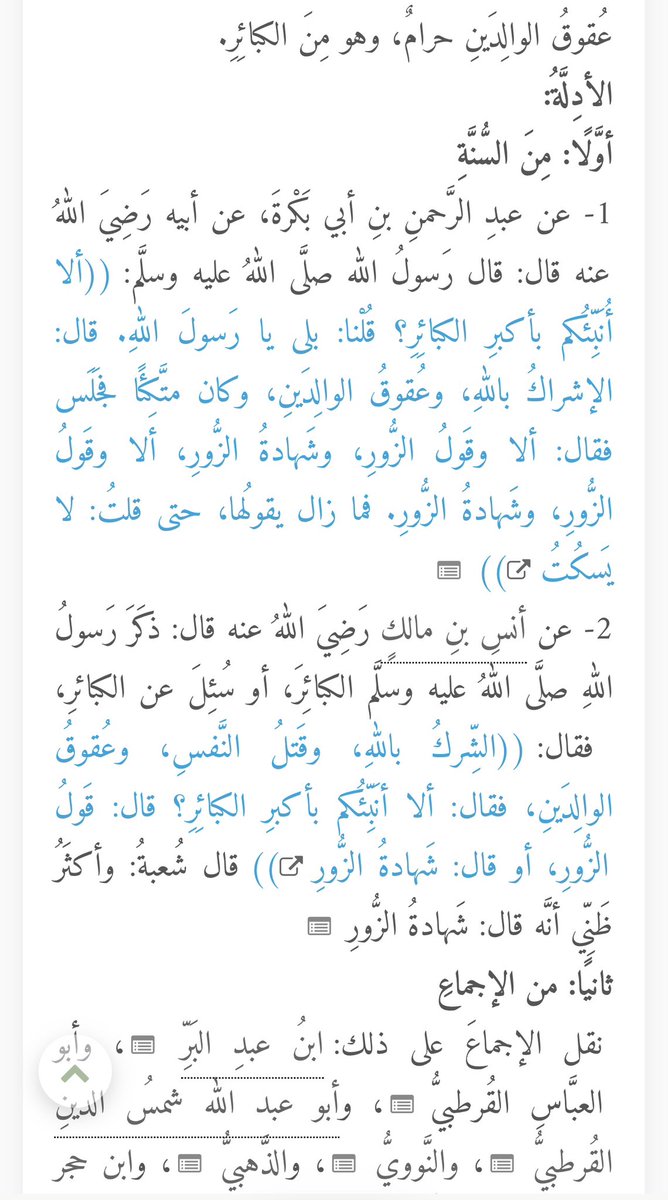 عُقوقُ الوالِدَينِ حرامٌ، وهو مِنَ الكبائِرِ.
الأدِلَّةُ:
أوَّلًا: مِنَ السُّنَّةِ
1- عن عبدِ الرَّحمنِ بنِ أبي بَكْرةَ، عن أبيه رَضِيَ اللهُ
عنه قال: قال رَسولُ الله صلَّى اللهُ عليه وسلَّم: ((ألا
أُنَبِّئُكم بأكبرِ الكبائِرِ؟ قُلْنا: بلى يا رَسولَ اللهِ. قال:
الإشراكُ باللهِ، وعُقوقُ الوالِدَينِ، وكان متَّكِئًا فجَلَس
فقال: ألا وقَولُ الزُّورِ، وشَهادةُ الزُّورِ، ألا وقَولُ
الزُّورِ، وشَهادةُ الزُّورِ. فما زال يقولُها، حتى قلتُ: لا
يَسكُتُ))
2- عن أنسِ بنِ مالكٍ رَضِيَ اللهُ عنه قال: ذكَرَ رَسولُ
اللهِ صلَّى اللهُ عليه وسلَّم الكبائِرَ، أو سُئِلَ عن الكبائرِ،
فقال: ((الشِّركُ باللهِ، وقَتلُ النَّفسِ، وعُقوقُ
الوالِدَينِ، فقال: ألا أنَبِّئُكم بأكبرِ الكبائرِ؟ قال: قَولُ
الزُّورِ، أو قال: شَهادةُ الزُّورِ)) قال شُعبةُ: وأكثَرُ
ظَنِّي أنَّه قال: شَهادةُ الزُّورِ
ثانيًا: من الإجماعِ
نقل الإجماعَ على ذلك: ابنُ عبدِ البَرِّ، وأبو
العبَّاسِ القُرطبيُّ، وأبو عبد الله شمسُ الدينِ
القُرطبيُّ، والنَّوويُّ، والذَّهبيُّ، وابن حجر